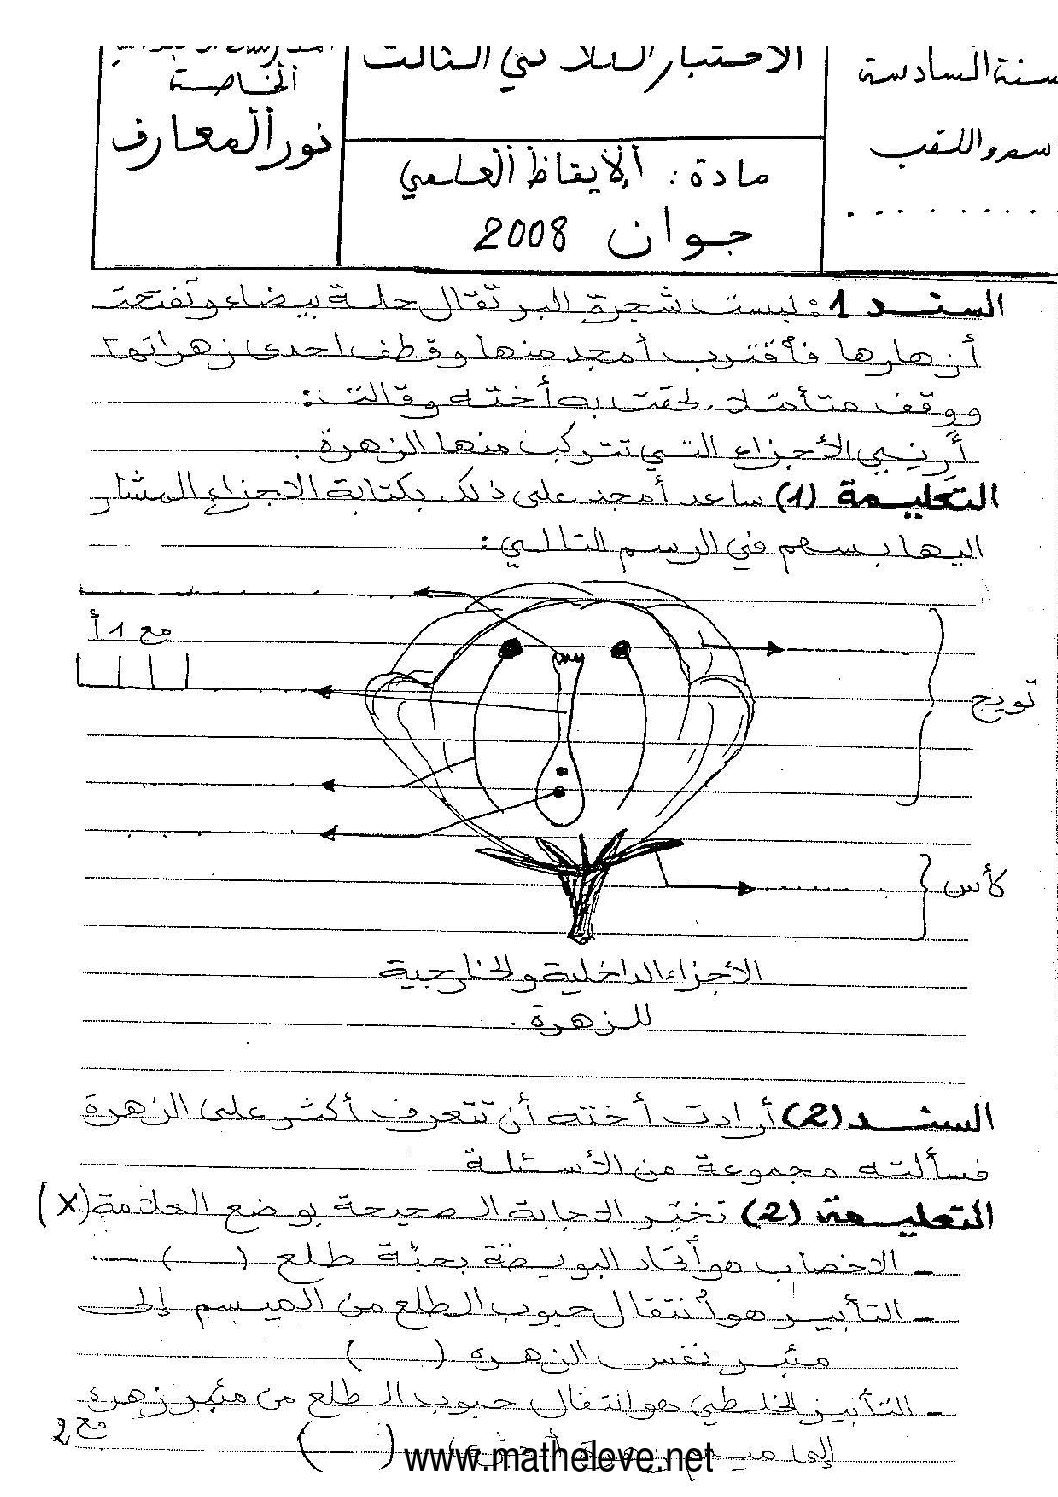 سنة السادسة
الاختبار الثلاثي الثالث
الخاصة
نور المعارف
مادة: الإيقاظ العلمي
جوان 2008
السند 1: لبست شجرة البرتقال حلة بيضاء وتفتحت
أزهارها فأقترب أمجد منها وقطف احدى زهراتها
ووقف متأملا. لحقت به أخته وقالت:
أرني الأجزاء التي تتركب منها الزهرة.
التعليمة (1) ساعد أمجد على ذلك بكتابة الاجزاء المشار
اليها بسهم في الرسم التالي:
مع 1 أ
تويج
كأس
الأجزاء الداخلية والخارجية
للزهرة.
السند (2) أرادت أخته أن تتعرف أكثر على الزهرة
فسألته مجموعة من الأسئلة
التعليمة (2) تخير الاجابة الصحيحة بوضع العلامة (x)
- الاخصاب هو أتحاد البويضة بحبة طلع ( )
- التأبير هو أنتقال حبوب الطلع من الميسم إلى
مئبر نفس الزهرة ( )
- التأبير الخلطي هو انتقال حبوب الطلع من مئبر زهرة
إلى ميسم زهرة أخرى ( )
مع 2
www.matheleve.net